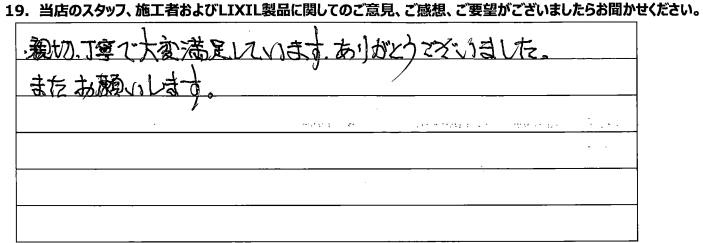 19. 当店のスタッフ、施工者およびLIXIL製品に関してのご意見、ご感想、ご要望がございましたらお聞かせください。
・親切、丁寧で大変満足しています。ありがとうございました。
またお願いします。